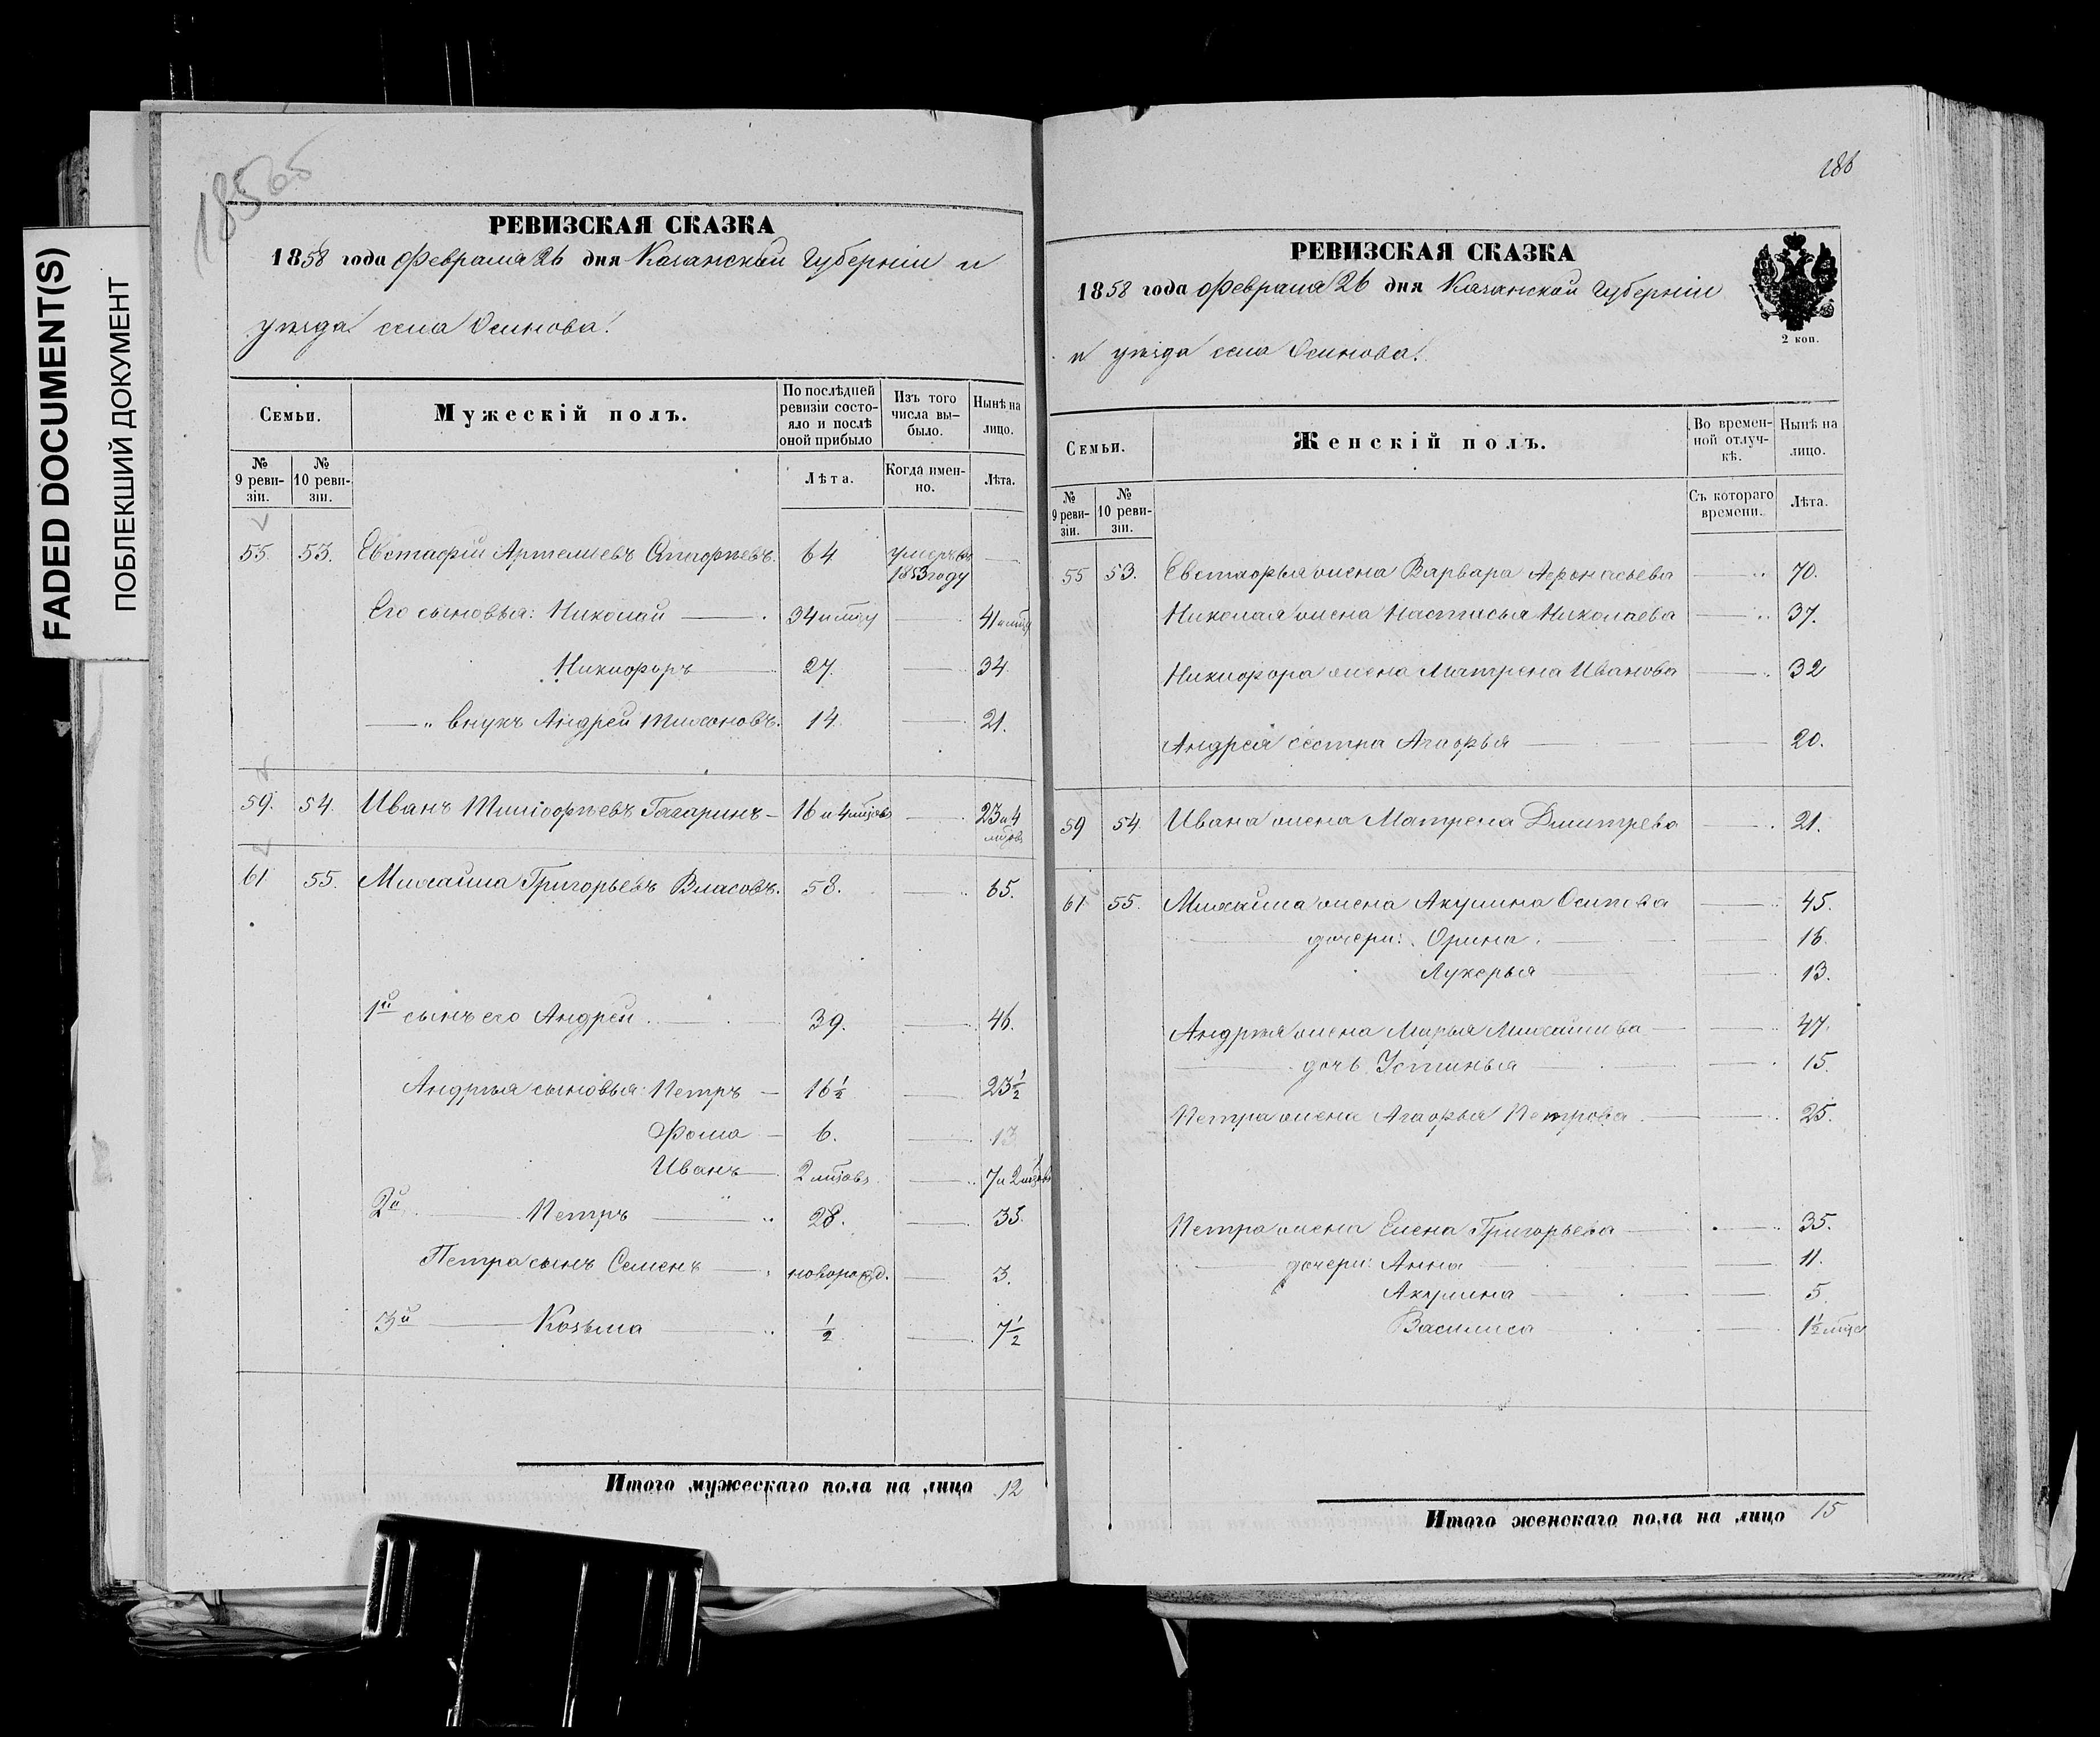 FADED DOCUMENT(S)
ПОБЛЕКШИЙ ДОКУМЕНТ
185об
РЕВИЗСКАЯ СКАЗКА
1858 года Февраля 26 дня Казанской Губернiи и
уѣзда села Осинова.
Семьи.
Мужескiй полъ.
По послѣдней ревизiи состояло и послѣ оной прибыло
Изъ того числа выбыло.
Нынѣ на лицо.
№ 9 ревизiи.
№ 10 ревизiи.
Лѣта.
Когда именно.
Лѣта.
55. 53. Евстафiй Артемьевъ 64 умеръ въ 1853 году —
Его сыновья: Николай — 34 — 41
Никифоръ — 27. — 34
— „ внукъ Андрей Тихоновъ. 14. — 21.
59. 54. Иванъ Тимофѣевъ Гагаринъ — 16 и 4 — 23 и 4
61 55. Михаила Григорьевъ Власовъ. 58. — 65.
1й сынъ его Андрей — 39. — 46.
Андрѣя сыновья: Петръ — 16½ — 23½
Фома — 6. — 13
Иванъ — 2 — 7 и 2
2й — Петръ — „ 28. — 35.
Петра сынъ Семенъ — новорожд. — 3.
3й — Козьма — „ ½ — 7½
Итого мужескаго пола на лицо 12
186
РЕВИЗСКАЯ СКАЗКА
1858 года Февраля 26 дня Казанской Губернiи
и уѣзда села Осинова.
2 коп.
Семьи.
Женскiй полъ.
Во временной отлучкѣ.
Нынѣ на лицо.
№ 9 ревизiи.
№ 10 ревизiи.
Съ котораго времени.
Лѣта.
55 53. Евстафья жена Варвара Афонасьева — 70.
Николая жена Настасья Николаева — 37.
Никифора жена Матрена Иванова — 32
Андрея сестра Агафья — 20.
59 54. Ивана жена Матрена Дмитрева — 21.
61 55. Михаила жена Акулина Осипова — 45.
дочери: Орина. — 16.
Лукерья — 13.
Андрѣя жена Марья Михайлова — 47.
дочь Устинья — 15.
Петра жена Агафья Петрова — 25.
Петра жена Елена Григорьева — 35.
дочери: Анна — 11.
Акулина — 5.
Василиса — 1½
Итого женскаго пола на лицо 15